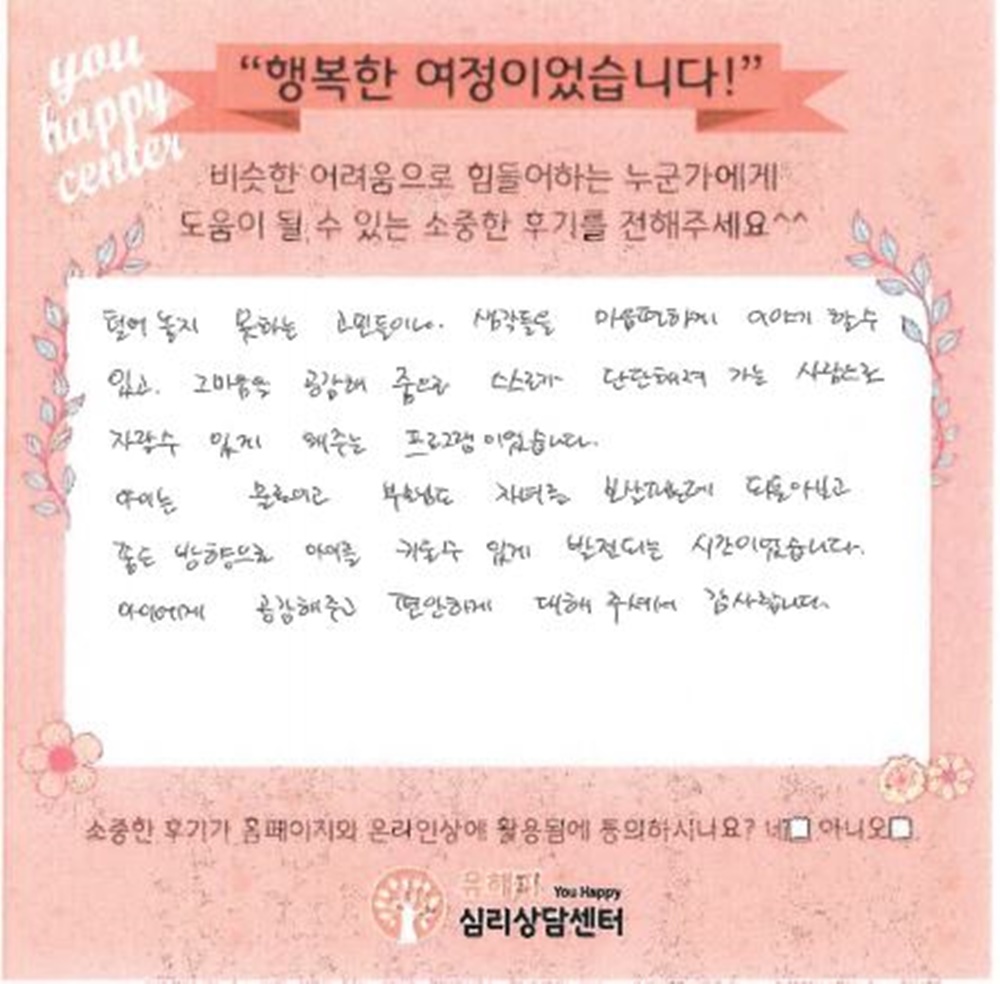 you
happy
center
“행복한 여정이었습니다!”
비슷한 어려움으로 힘들어하는 누군가에게
도움이 될 수 있는 소중한 후기를 전해주세요^^
털어 놓지 못하는 고민들이나. 생각들을 마음편하게 이야기 할수
있고. 그마음을 공감해 줌으로 스스로가 단단해져 가는 사람으로
자랄수 있게 해주는 프로그램이었습니다.
아이는 물론이고 부모님도 자녀를 되돌아보고
좋은 방향으로 아이를 키울수 있게 발전되는 시간이었습니다.
아이에게 공감해주고 편안하게 대해 주셔서 감사합니다.
소중한 후기가 홈페이지와 온라인상에 활용됨에 동의하시나요? 네□ 아니오□
유해피 You Happy
심리상담센터